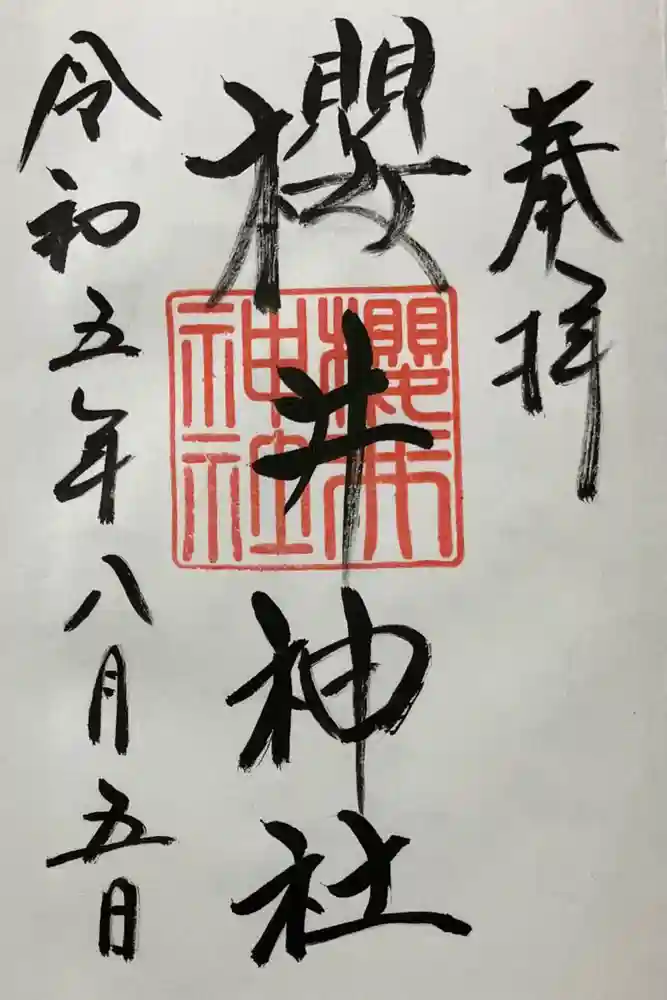 奉拝
櫻井神社
櫻井
神社
令和五年八月五日